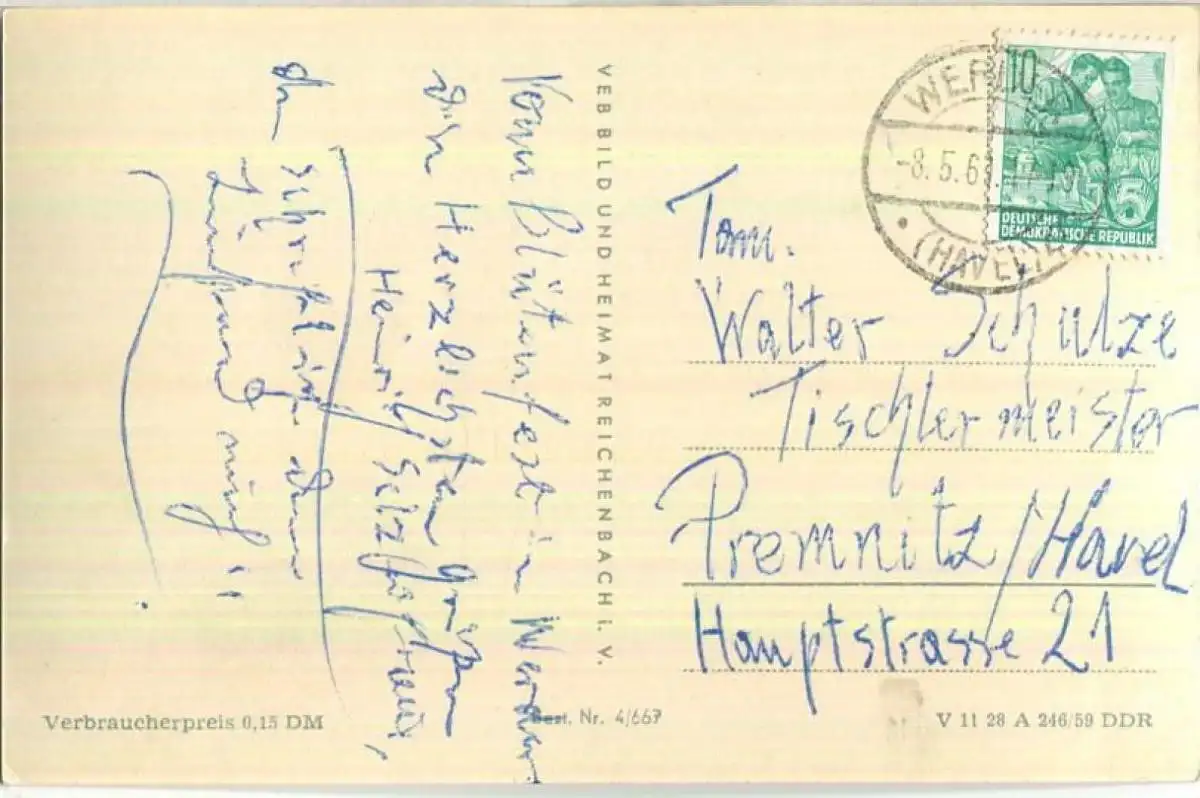 Vom Blütenfest in Werder
die Herzlichsten Grüße
Heinrich
VEB BILD UND HEIMAT REICHENBACH i. V.
WERDER
-8.5.61
(HAVEL)
10
5
DEUTSCHE
DEMOKRATISCHE REPUBLIK
Fam.
Walter Schulze
Tischlermeister
Premnitz/Havel
Hauptstrasse 21
Verbraucherpreis 0,15 DM
Best. Nr. 4/667
V 11 28 A 246/59 DDR